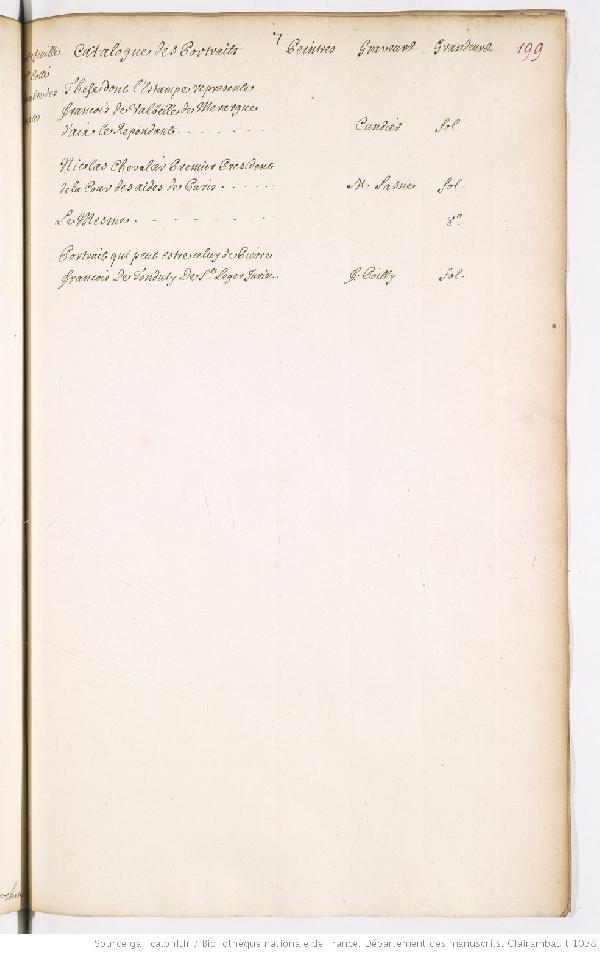 7
Catalogue des Portraits Peintres Graveurs Grandeurs 199
These dont l'Estampe represente
françois de Valbelle de Merargue
d'aix le Repondant . . . . . . . Cundier fol
Nicolas Chevalier Premier President
de la Cour des aides de Paris . . . . . M. Lasne fol.
Le Mesme . . . . . . . 8°.
Portrait qui peut estre celuy de Pierre
françois De Tonduty De St. Leger Juris.. f. Poilly fol.
Source gallica.bnf.fr / Bibliothèque nationale de France. Département des manuscrits. Clairambault 1038